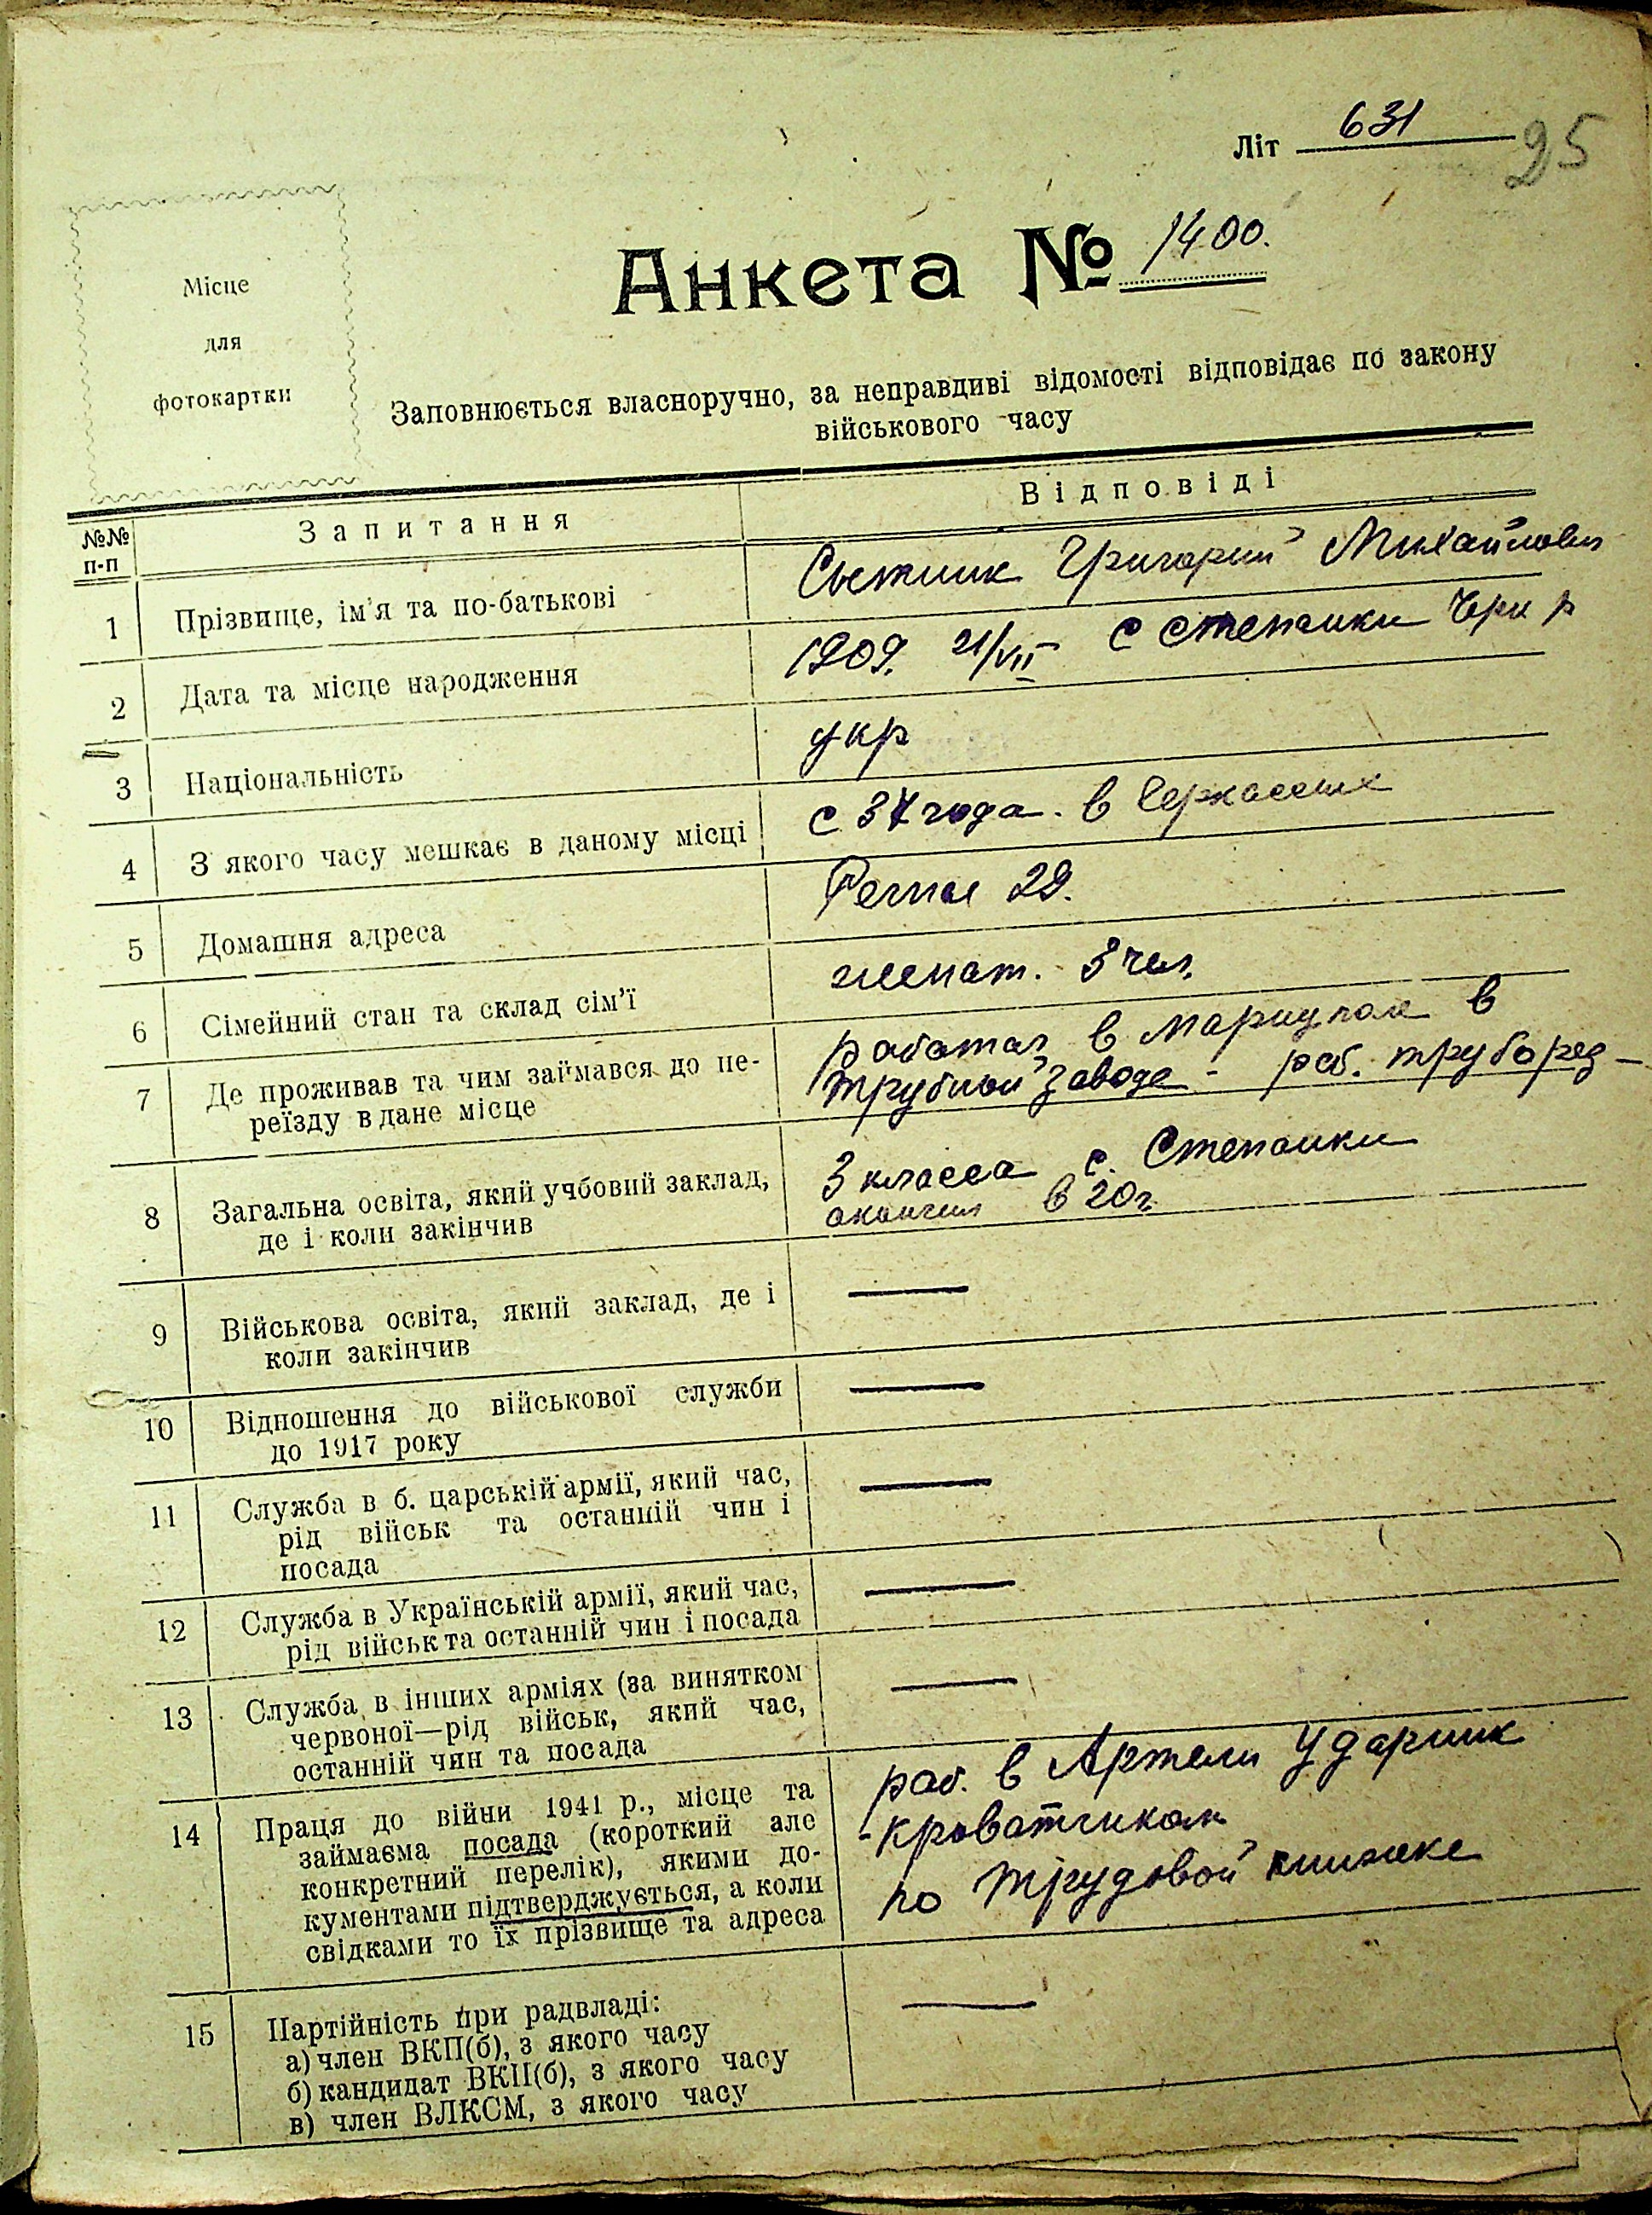 Літ 631
25
Місце
для
фотокартки
Анкета № 1400.
Заповнюється власноручно, за неправдиві відомості відповідає по закону
військового часу
№№
п-п
Запитання
Відповіді
1
Прізвище, ім'я та по-батькові
Григорий Михайлович
2
Дата та місце народження
1909. 21/VII с Степанки Черк р
3
Національність
укр
4
З якого часу мешкає в даному місці
с 37 года. в Черкассах
5
Домашня адреса
29.
6
Сімейний стан та склад сім'ї
женат. 3 чел.
7
Де проживав та чим займався до пе-
реїзду в дане місце
работал в Мариуполе в
трубный заводе - раб. труборез
8
Загальна освіта, який учбовий заклад,
де і коли закінчив
3 класса с. Степанки
окончил в 20 г.
9
Військова освіта, який заклад, де і
коли закінчив
—
10
Відношення до військової служби
до 1917 року
—
11
Служба в б. царській армії, який час,
рід військ та останній чин і
посада
—
12
Служба в Українській армії, який час,
рід військ та останній чин і посада
—
13
Служба в інших арміях (за винятком
червоної—рід військ, який час,
останній чин та посада
—
14
Праця до війни 1941 р., місце та
займаєма посада (короткий але
конкретний перелік), якими до-
кументами підтверджується, а коли
свідками то їх прізвище та адреса
раб. в Артели Ударник
- кроватчиком
по трудовой книжке
15
Партійність при радвладі:
а) член ВКП(б), з якого часу
б) кандидат ВКП(б), з якого часу
в) член ВЛКСМ, з якого часу
—